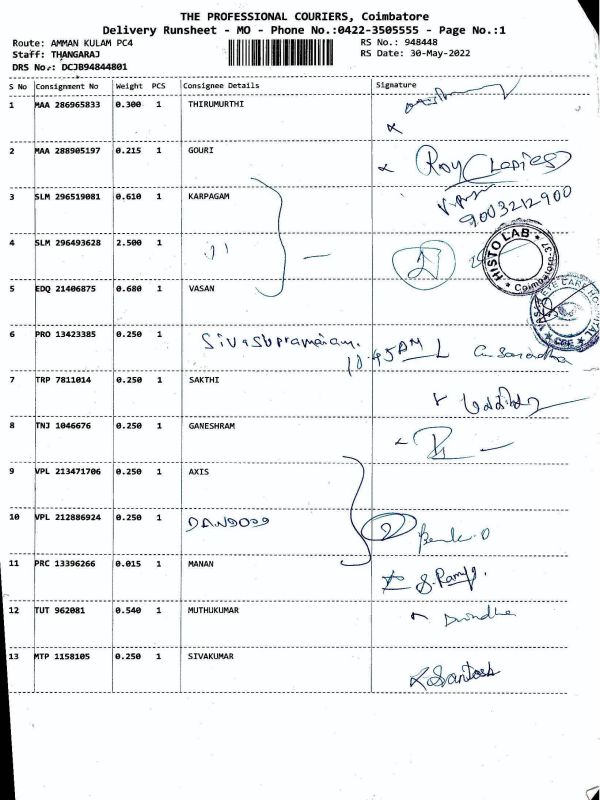 THE PROFESSIONAL COURIERS, Coimbatore
Delivery Runsheet - MO - Phone No.:0422-3505555 - Page No.:1
Route: AMMAN KULAM PC4 RS No.: 948448
Staff: THANGARAJ RS Date: 30-May-2022
DRS No.: DCJB94844801
S No Consignment No Weight PCS Consignee Details Signature
1 MAA 286965833 0.300 1 THIRUMURTHI
2 MAA 288905197 0.215 1 GOURI Roy
3 SLM 296519081 0.610 1 KARPAGAM
9003212900
4 SLM 296493628 2.500 1 2
HISTO LAB
5 EDQ 21406875 0.680 1 VASAN
VASAN EYE CARE HOSPITAL
CBE
6 PRO 13423385 0.250 1
10.45 AM
7 TRP 7811014 0.250 1 SAKTHI
8 TNJ 1046676 0.250 1 GANESHRAM
9 VPL 213471706 0.250 1 AXIS
10 VPL 212886924 0.250 1 2
11 PRC 13396266 0.015 1 MANAN
12 TUT 962081 0.540 1 MUTHUKUMAR
13 MTP 1158105 0.250 1 SIVAKUMAR Santosh